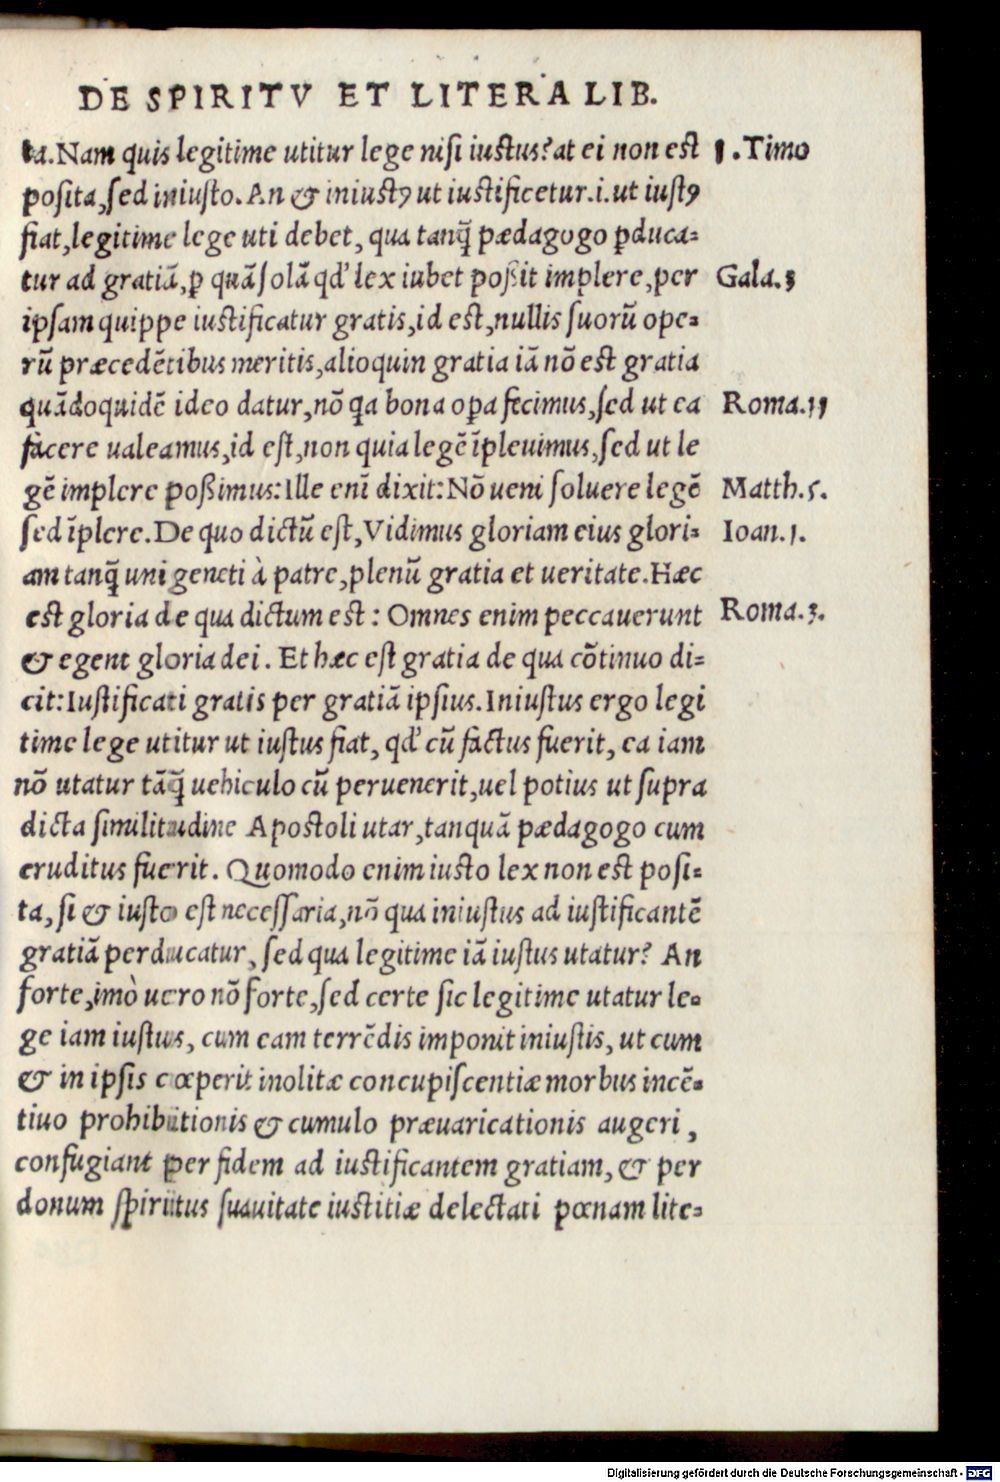 DE SPIRITV ET LITERA LIB.
ta. Nam quis legitime utitur lege nisi iustus? at ei non est
1. Timo
posita, sed iniusto. An & iniustꝰ ut iustificetur .i. ut iustꝰ
fiat, legitime lege uti debet, qua tanq̃ pædagogo ꝑduca-
tur ad gratiã, ꝑ quã solã qđ lex iubet poßit implere, per
Gala. 3
ipsam quippe iustificatur gratis, id est, nullis suorũ ope-
rũ præcedẽtibus meritis, alioquin gratia iã nõ est gratia
quãdoquidẽ ideo datur, nõ qa bona oꝑa fecimus, sed ut ea
Roma. 11
facere ualeamus, id est, non quia legẽ ĩpleuimus, sed ut le
gẽ implere poßimus: Ille enĩ dixit: Nõ ueni soluere legẽ
Matth. 5.
sed ĩplere. De quo dictũ est, Vidimus gloriam eius glori-
Ioan. 1.
am tanq̃ unigeneti à patre, plenũ gratia et ueritate. Hæc
est gloria de qua dictum est: Omnes enim peccauerunt
Roma. 3.
& egent gloria dei. Et hæc est gratia de qua cõtinuo di-
cit: Iustificati gratis per gratiã ipsius. Iniustus ergo legi
time lege utitur ut iustus fiat, qđ cũ factus fuerit, ea iam
nõ utatur tãq̃ uehiculo cũ peruenerit, uel potius ut supra
dicta similitudine Apostoli utar, tanquã pædagogo cum
eruditus fuerit. Quomodo enim iusto lex non est posi-
ta, si & iusto est necessaria, nõ qua iniustus ad iustificantẽ
gratiã perducatur, sed qua legitime iã iustus utatur? An
forte, imò uero nõ forte, sed certe sic legitime utatur le-
ge iam iustus, cum eam terrẽdis imponit iniustis, ut cum
& in ipsis cœperit inolitæ concupiscentiæ morbus incẽ-
tiuo prohibitionis & cumulo præuaricationis augeri,
confugiant per fidem ad iustificantem gratiam, & per
donum spiritus suauitate iustitiæ delectati pœnam lite-
Digitalisierung gefördert durch die Deutsche Forschungsgemeinschaft - DFG